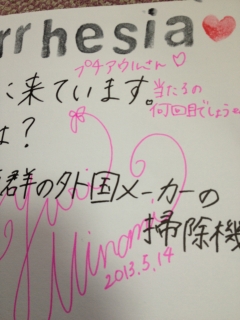 rrhesia
プチアウルさん♡
に来ています。
当たるの
何回目でしょうo
は?
群の外国メーカーの
掃除機
Yurie
Minami
2013.5.14